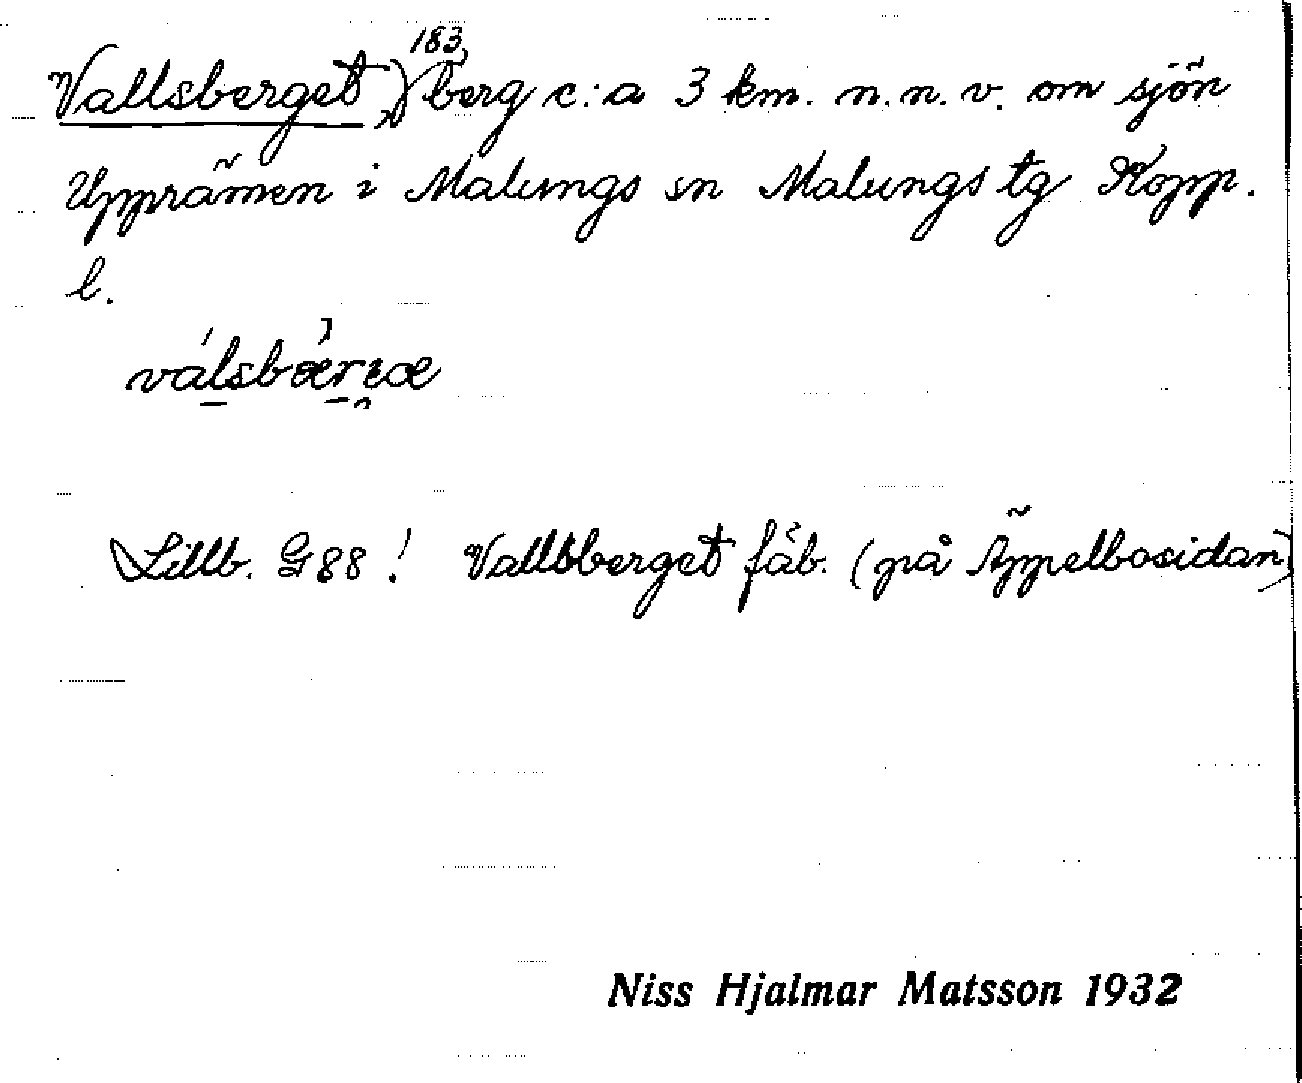 183
Vallsberget, berg c:a 3 km. n.n.v. om sjön
Upprämen i Malungs sn Malungs tg Kopp.
l.
Lillb. G88! Vallsberget fäb. (på Äppelbosidan)
Niss Hjalmar Matsson 1932